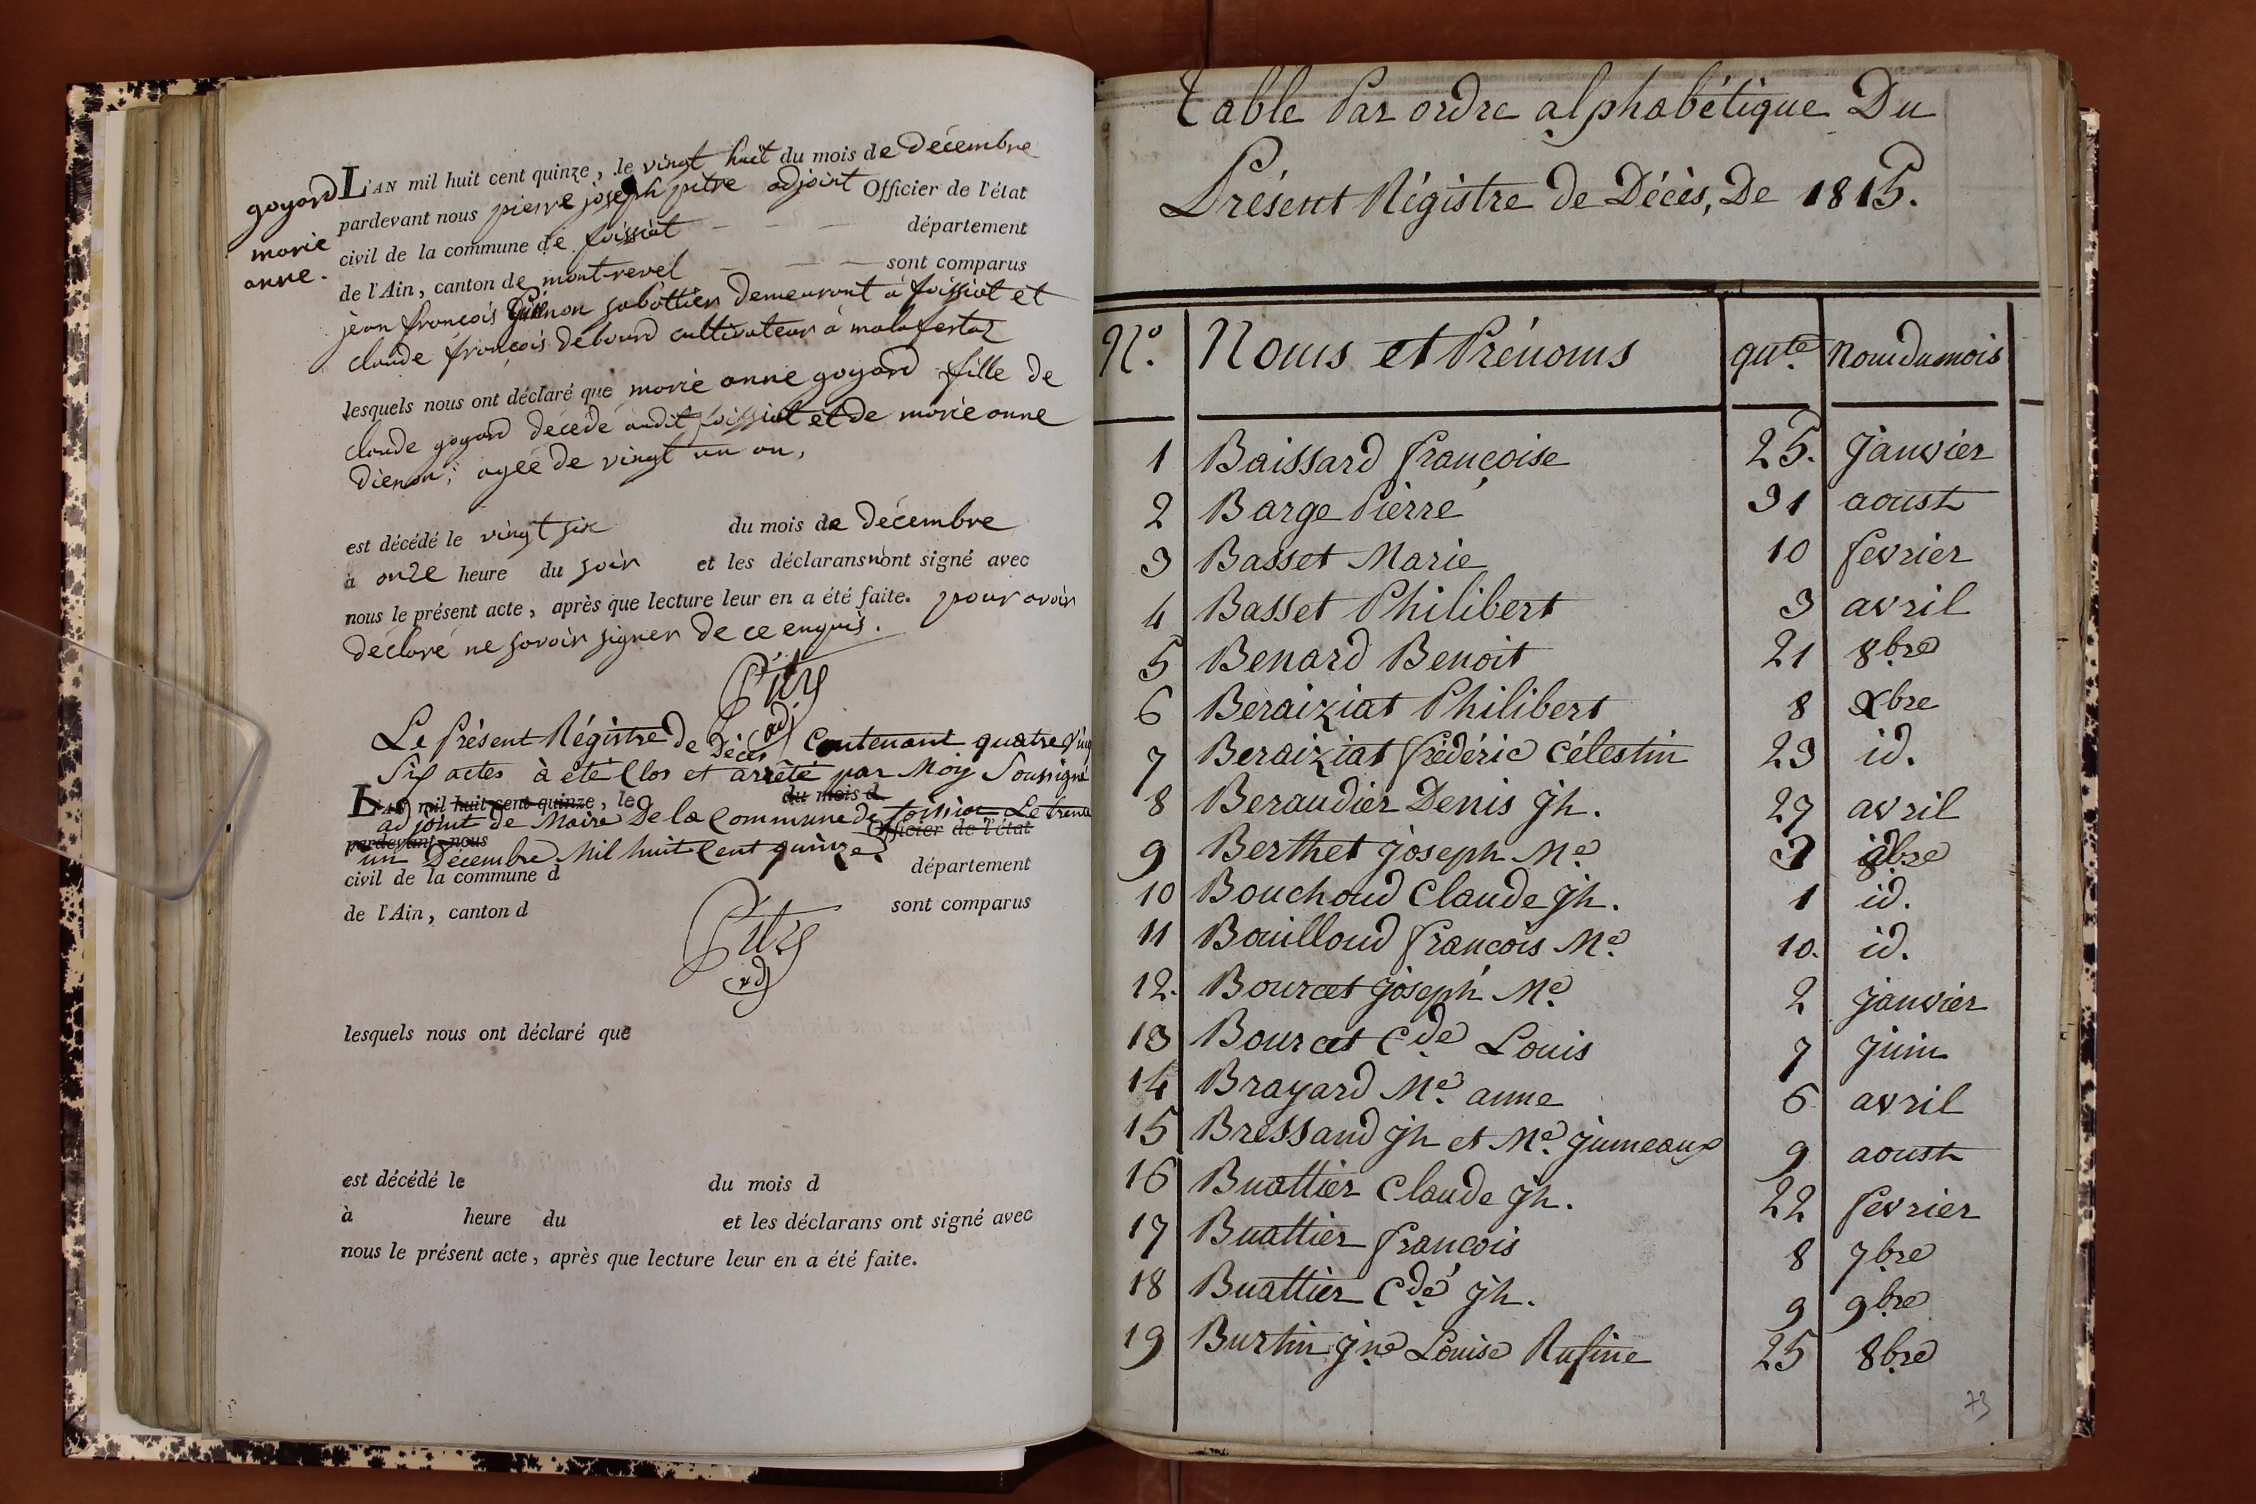 goyard
marie
anne.
L'AN mil huit cent quinze, le vingt huit du mois de décembre
pardevant nous pierre joseph pitre adjoint Officier de l'état
civil de la commune de foissiat département
de l'Ain, canton de mont-revel sont comparus
jean françois sabottier demeurant à foissiat et
claude françois debourd cultivateur à malafertaz
lesquels nous ont déclaré que marie anne goyard fille de
claude goyard décédé audit foissiat et de marie anne
dienon; agée de vingt un an,
est décédé le vingt six du mois de décembre
à onze heure du soir et les déclarans n'ont signé avec
nous le présent acte, après que lecture leur en a été faite. pour avoir
déclaré ne savoir signer de ce enquis.
Pitre
adj
Le présent Régistre de Décès Contenant quatre vingt
Six actes à été Clos et arrêté par Moy Soussigné
L'AN mil huit cent quinze, le du mois d
adjoint de Maire De la Commune de foissiat Le trente
pardevant nous Officier de l'état
un Décembre Mil huit Cent quinze.
civil de la commune d département
de l'Ain, canton d sont comparus
Pitre
adj
lesquels nous ont déclaré que
est décédé le du mois d
à heure du et les déclarans ont signé avec
nous le présent acte, après que lecture leur en a été faite.
Table Par ordre alphabétique Du
Présent Régistre de Décès, De 1815.
N.o Noms et Prénoms qute. nom du mois
1 Baissard françoise 25. janvier
2 Barge Pierre 31 aoust
3 Basset Marie 10 fevrier
4 Basset Philibert 3 avril
5 Benard Benoit 21 8bre
6 Beraiziat Philibert 8 Xbre
7 Beraiziat frédéric Célestin 23 id.
8 Beraudier Denis jh. 27 avril
9 Berthet joseph Me. 3 9bre
10 Bouchoud Claude jh. 1 id.
11 Bouilloud francois Me. 10. id.
12. Bourcet joseph Me. 2 janvier
13 Bourcet Cde Louis 7 juin
14 Brayard Me. anne 6 avril
15 Bressand jh et Me. jumeaux 9 aoust
16 Buattier Claude jh. 22 fevrier
17 Buattier francois 8 7bre
18 Buattier Cde jh. 9 9bre
19 Burtin jne Louise Rufine 25 8bre
73